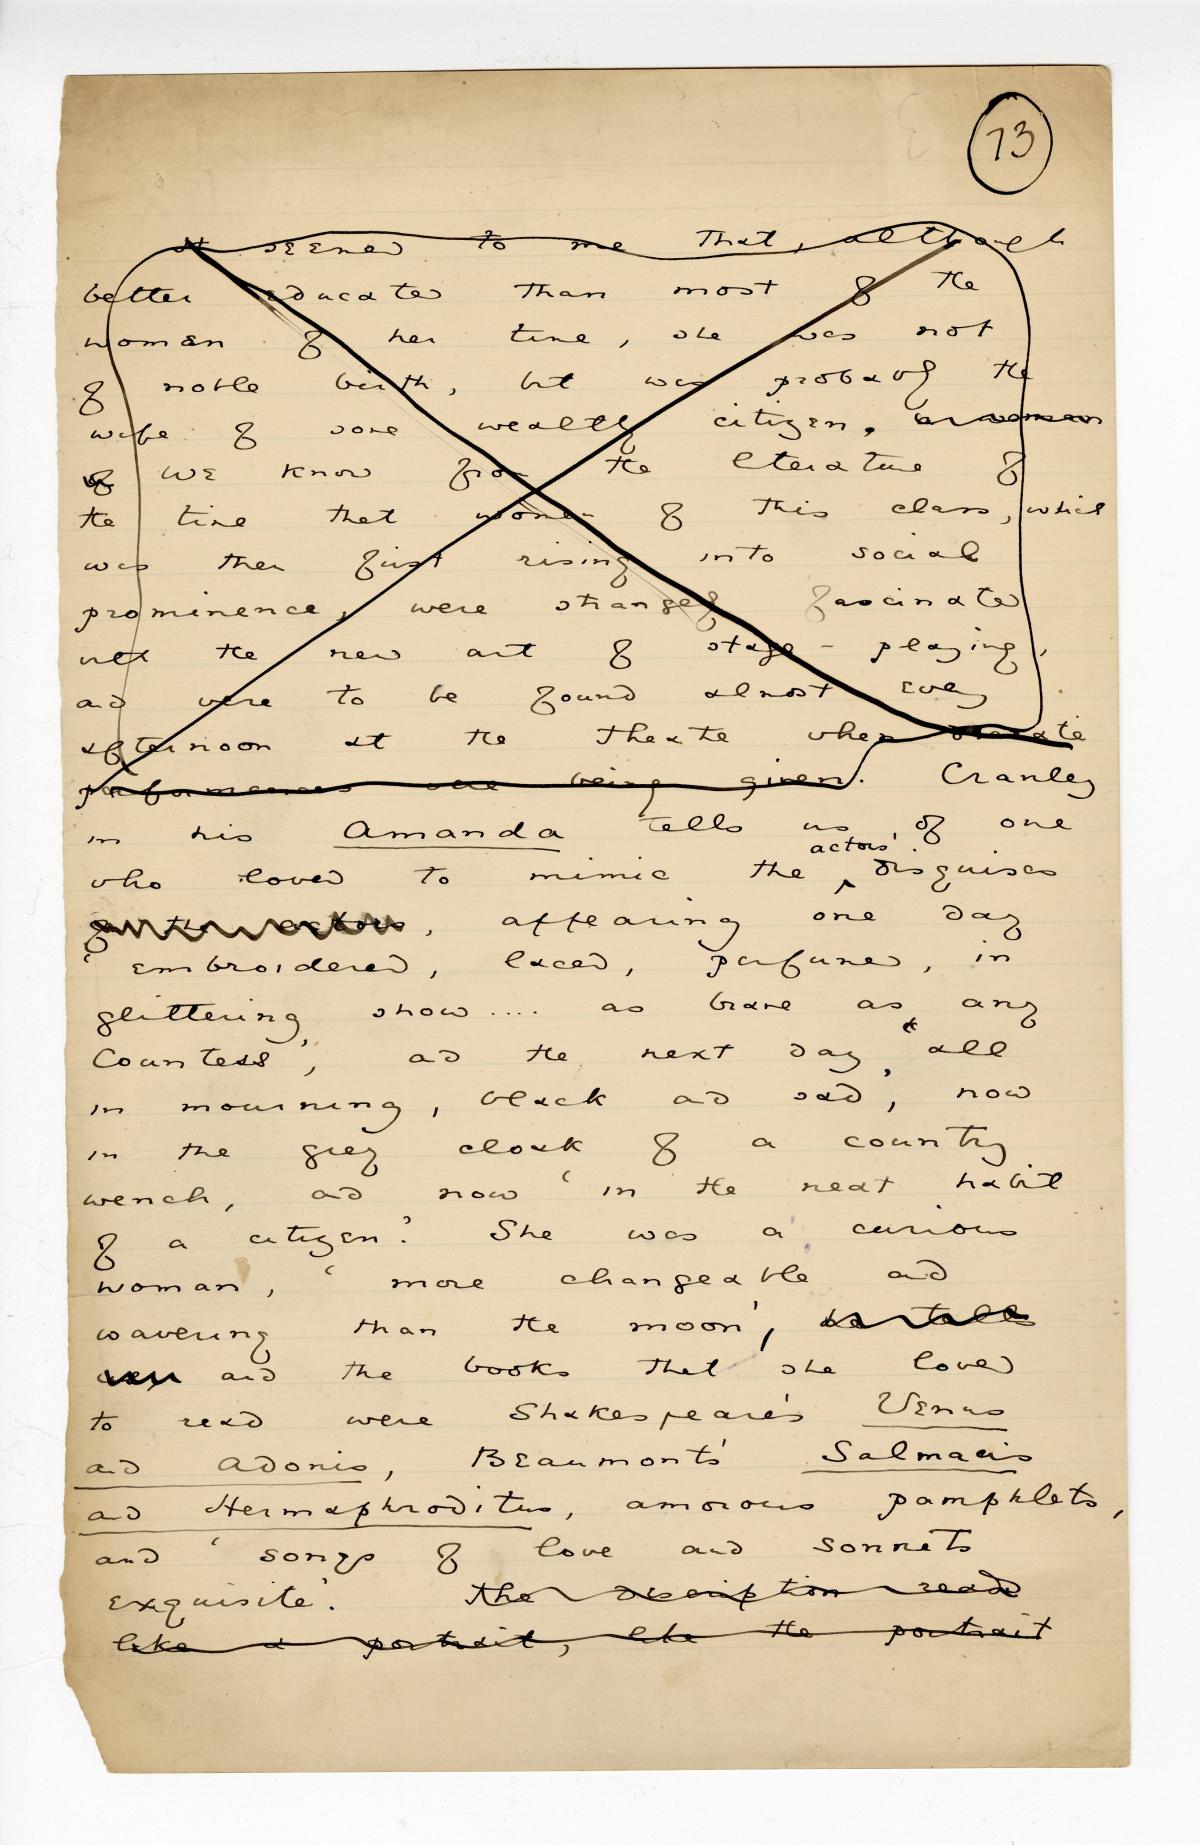 73
it seemed to me that, although
better educated than most of the
women of her time, she was not
of noble birth, but was probably the
wife of some wealthy citizen, or woman
of we know from the literature of
the time that women of this class, which
was then first rising into social
prominence, were strangely fascinated
with the new art of stage-playing,
and were to be found almost every
afternoon at the theatre when dramatic
performances were being given. Cranley
in his Amanda tells us of one
actors'
who loved to mimic the disguises
of the actors, appearing one day
'embroidered, laced, perfumed, in
glittering show.... as brave as any
Countess', and the next day 'all
in mourning, black and sad', now
in the grey cloak of a country
wench, and now 'in the neat habit
of a citizen.' She was a curious
woman, 'more changeable and
wavering than the moon', he tells
and the books that she loved
to read were Shakespeare's Venus
and Adonis, Beaumont's Salmacis
and Hermaphroditus, amorous pamphlets,
and 'songs of love and sonnets
exquisite'. The description reads
like a portrait, like the portrait